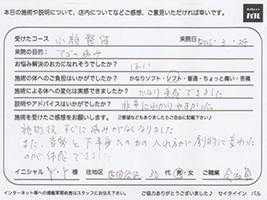 本日の施術や説明について、店内についてなどご感想、ご意見いただければ幸いです。
バル
受けたコース 小顔整体
来院の目的: アゴの痛み
お悩み解決のお力になれそうでしたか? はい
施術の体への負担はいかがでしたか? かなりソフト・ソフト・普通・ちょっと痛い・苦痛
施術による体への変化は実感できましたか? かなり実感できました
説明やアドバイスはいかがでしたか? 非常にわかりやすかった
施術を受けたご感想をお願いします。
施術後すぐに痛みがなくなりました
また、 下半身への力の入れ方が劇的に変わったのが体感できました
イニシャル Y・Y 様 住地区 世田谷区 30代 男・女 ご職業 会社員
インターネット等への掲載不可の方はスタッフにお伝え下さい。 ご協力ありがとうございました。 セイタイイン バル